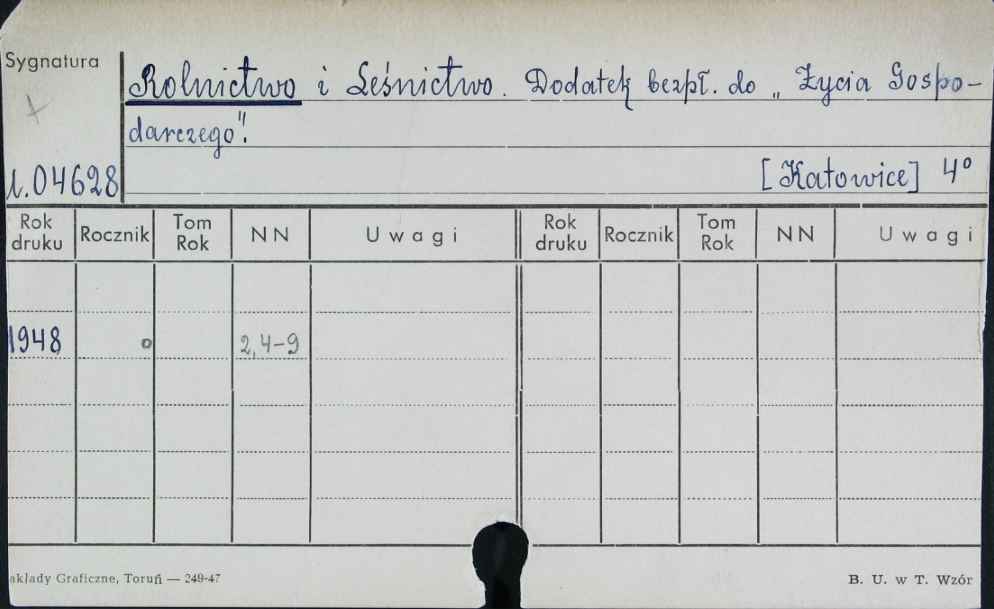 Sygnatura
Rolnictwo i Leśnictwo. Dodatek bezpł. do „Życia Gospo-
darczego".
[Katowice] 4°
1.04628
Rok druku Rocznik Tom Rok NN Uwagi Rok druku Rocznik Tom Rok NN Uwagi
1948 o 2,4-9
akłady Graficzne, Toruń — 249-47 B. U. w T. Wzór